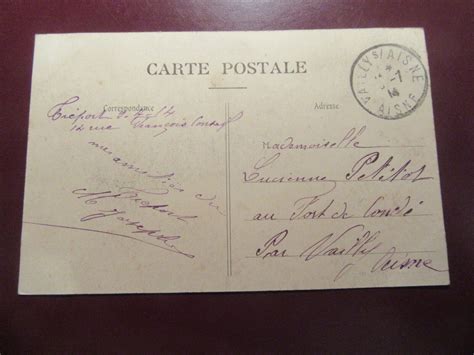 CARTE POSTALE
Correspondance
Adresse
VAILLY S/AISNE
-7
14
AISNE
Tréport
rue François
du
Tréport
Mademoiselle
Lucienne Petitot
au Fort de Condé
Par Vailly
Aisne